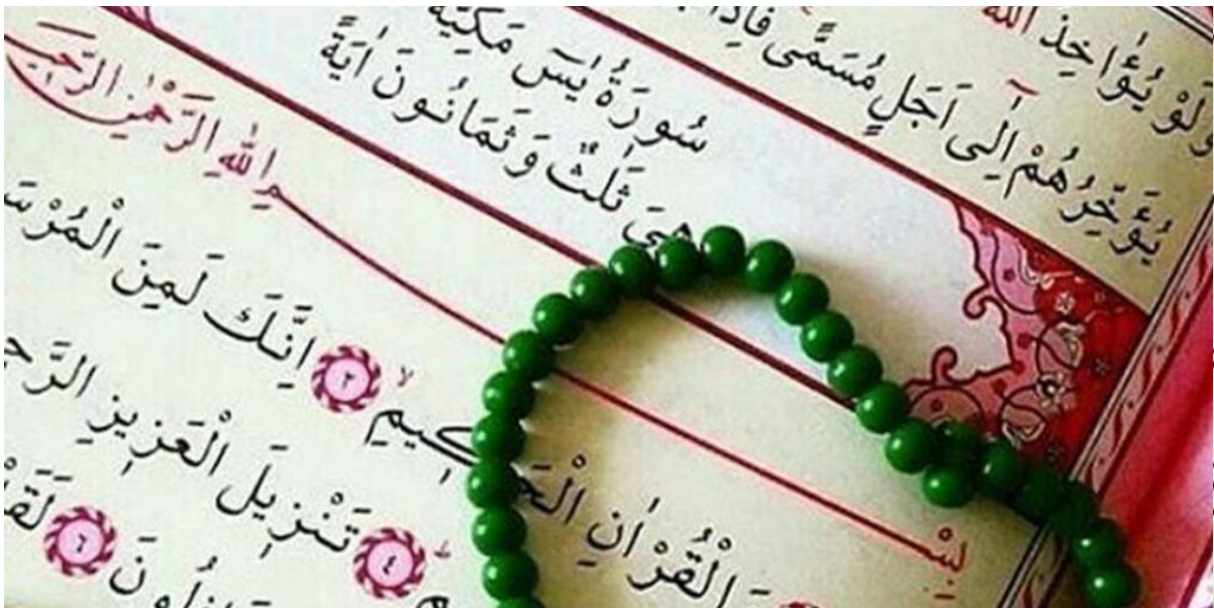 وَلَوْ يُؤَاخِذُ اللّٰهُ
يُؤَخِّرُهُمْ اِلٰٓى اَجَلٍ مُسَمًّى فَاِذَا
سُورَةُ يٰسٓ مَكِّيَّةٌ
وَهِيَ ثَلٰثٌ وَثَمَانُونَ اٰيَةً
بِسْمِ اللّٰهِ الرَّحْمٰنِ الرَّحِيمِ
وَالْقُرْاٰنِ الْحَكِيمِۙ ٢ اِنَّكَ لَمِنَ الْمُرْسَ
٤ تَنْزِيلَ الْعَزِيزِ الرَّح
٦ لَقَدْ